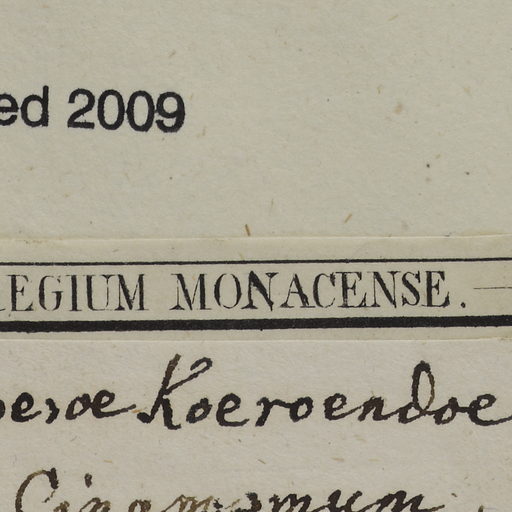 ed 2009
REGIUM MONACENSE.
oesoe Koeroendoe
Cinamomum